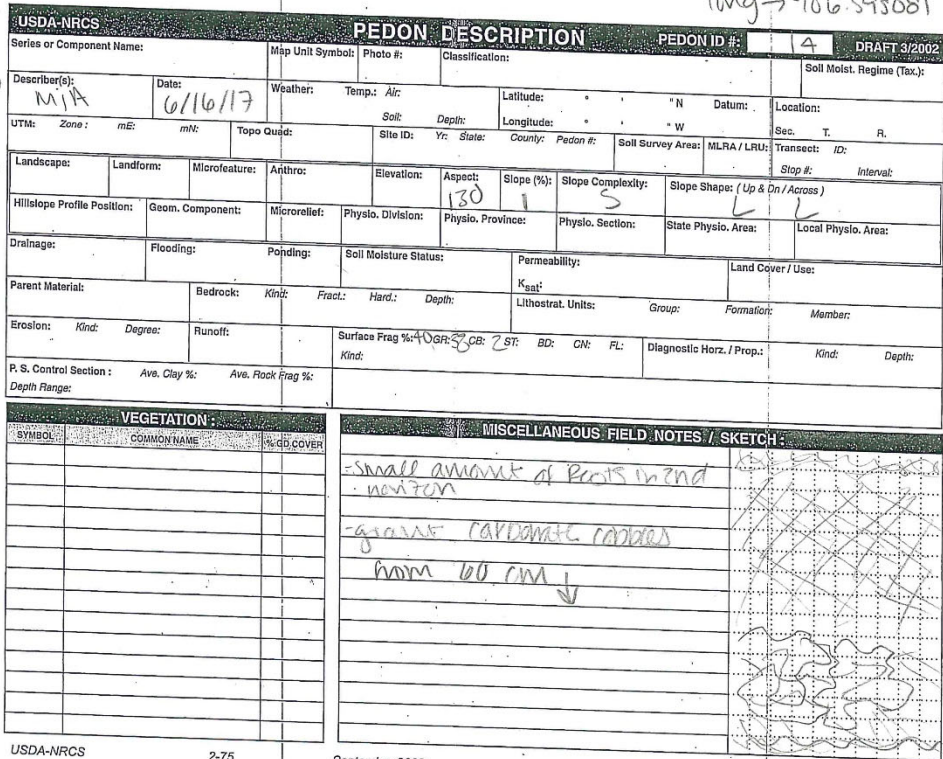 long → 106.595081
USDA-NRCS PEDON DESCRIPTION PEDON ID #: 14 DRAFT 3/2002
Series or Component Name: Map Unit Symbol: Photo #: Classification: Soil Moist. Regime (Tax.):
Describer(s): M/A Date: 6/16/17 Weather: Temp.: Air: Soil: Depth: Latitude: ° ' " N Longitude: ° ' " W Datum: Location: Sec. T. R.
UTM: Zone: mE: mN: Topo Quad: Site ID: Yr: State: County: Pedon #: Soil Survey Area: MLRA / LRU: Transect: ID: Stop #: Interval:
Landscape: Landform: Microfeature: Anthro: Elevation: Aspect: 130 Slope (%): 1 Slope Complexity: S Slope Shape: (Up & Dn / Across) L L
Hillslope Profile Position: Geom. Component: Microrelief: Physio. Division: Physio. Province: Physio. Section: State Physio. Area: Local Physio. Area:
Drainage: Flooding: Ponding: Soil Moisture Status: Permeability: Ksat: Land Cover / Use:
Parent Material: Bedrock: Kind: Fract.: Hard.: Depth: Lithostrat. Units: Group: Formation: Member:
Erosion: Kind: Degree: Runoff: Surface Frag %: 40 GR: 38 CB: 2 ST: BD: CN: FL: Kind: Diagnostic Horz. / Prop.: Kind: Depth:
P. S. Control Section: Ave. Clay %: Ave. Rock Frag %:
Depth Range:
VEGETATION:
SYMBOL COMMON NAME % GD. COVER
MISCELLANEOUS FIELD NOTES / SKETCH:
-small amount of Roots in 2nd
horizon
-giant carbonate cobbles
from 60 cm ↓
USDA-NRCS 2-75